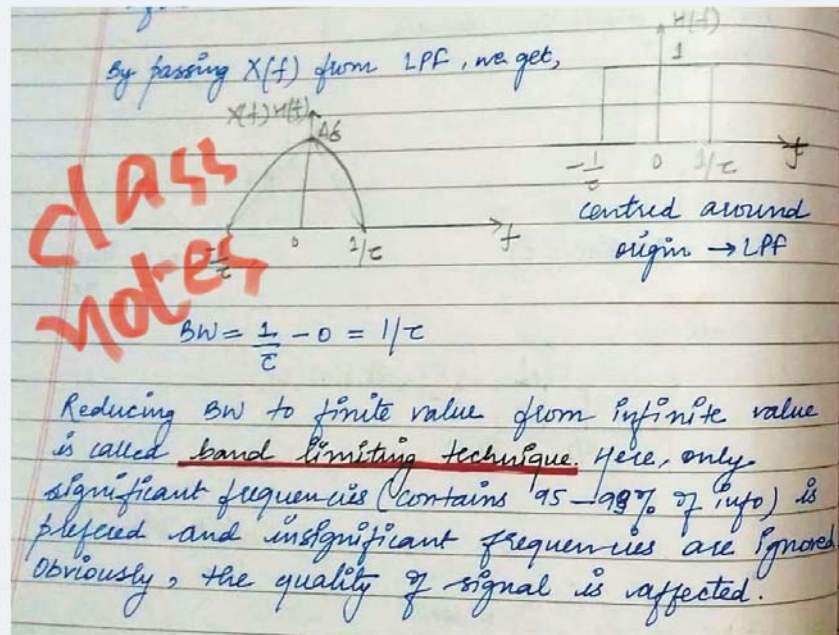 By passing X(f) from LPF, we get,
H(f)
1
-1/τ 0 1/τ f
centred around
origin → LPF
X(f) H(f)
0 1/τ f
class
notes
BW = 1/τ - 0 = 1/τ
Reducing BW to finite value from infinite value
is called band limiting technique. Here, only
significant frequencies (contains 95-99% of info) is
prefered and insignificant frequencies are ignored
Obviously, the quality of signal is affected.